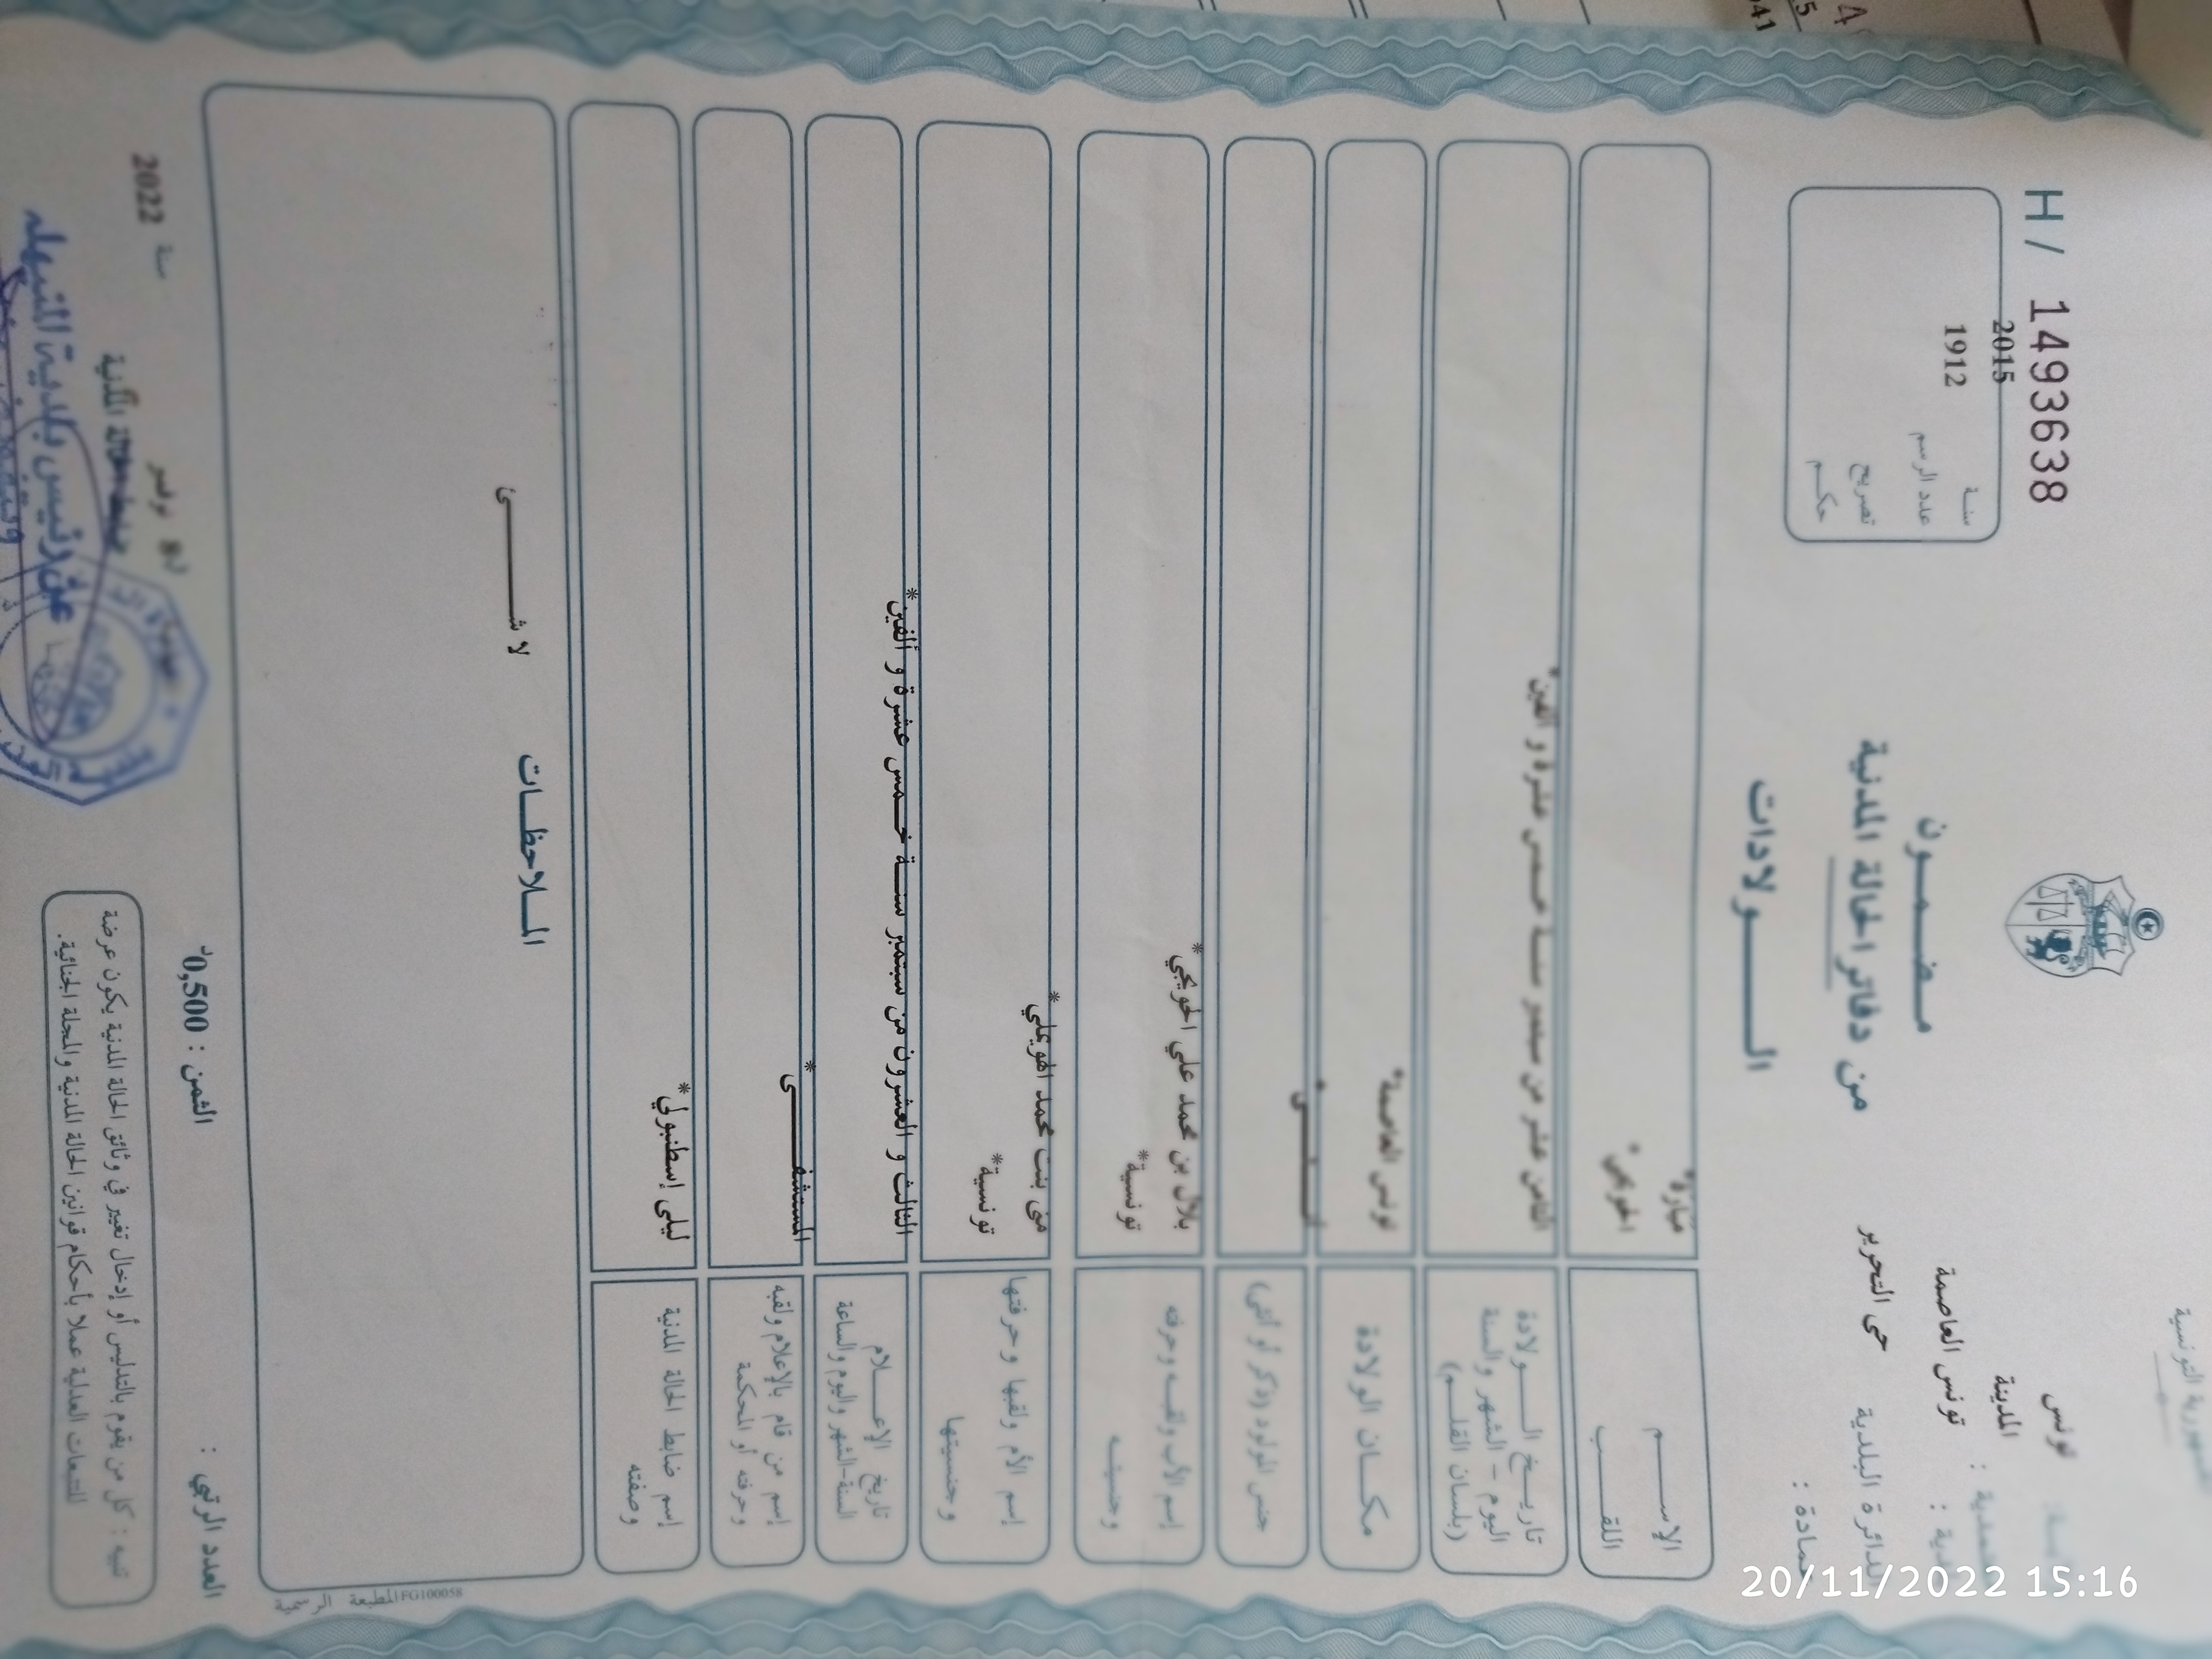 H/ 1493638
2015 سنة
1912 عدد الرسم
تصريح
حكم
الجمهورية التونسية
تونس
المدينة
تونس العاصمة
الدائرة البلدية حي التحرير
عمادة :
مضمون
من دفاتر الحالة المدنية
الولادات
الإسم
اللقب
الحويجي*
تاريخ الولادة
اليوم - الشهر والسنة
(بلسان القلم)
الثامن عشر من سبتمبر سنة خمس عشرة و ألفين*
مكان الولادة
تونس العاصمة*
جنس المولود (ذكر أو أنثى)
إسم الأب ولقبه وحرفته
وجنسيته
بلال بن محمد علي الحويجي*
تونسية*
إسم الأم ولقبها وحرفتها
وجنسيتها
منى بنت محمد الهويملي*
تونسية*
تاريخ الإعلام
السنة-الشهر واليوم والساعة
الثالث و العشرون من سبتمبر سنة خمس عشرة و ألفين*
إسم من قام بالإعلام ولقبه
وحرفته أو المحكمة
المستشفى*
إسم ضابط الحالة المدنية
وصفته
ليلى إسطنبولي*
الملاحظات
لا شئ
المطبعة الرسمية FG100058
العدد الرتبي :
الثمن : 0,500د
تنبيه : كل من يقوم بالتدليس أو إدخال تغيير في وثائق الحالة المدنية يكون عرضة
للتتبعات العدلية عملا بأحكام قوانين الحالة المدنية والمجلة الجنائية.
نوفمبر
سنة 2022
عن رئيس بلدية المنيهلة
20/11/2022 15:16